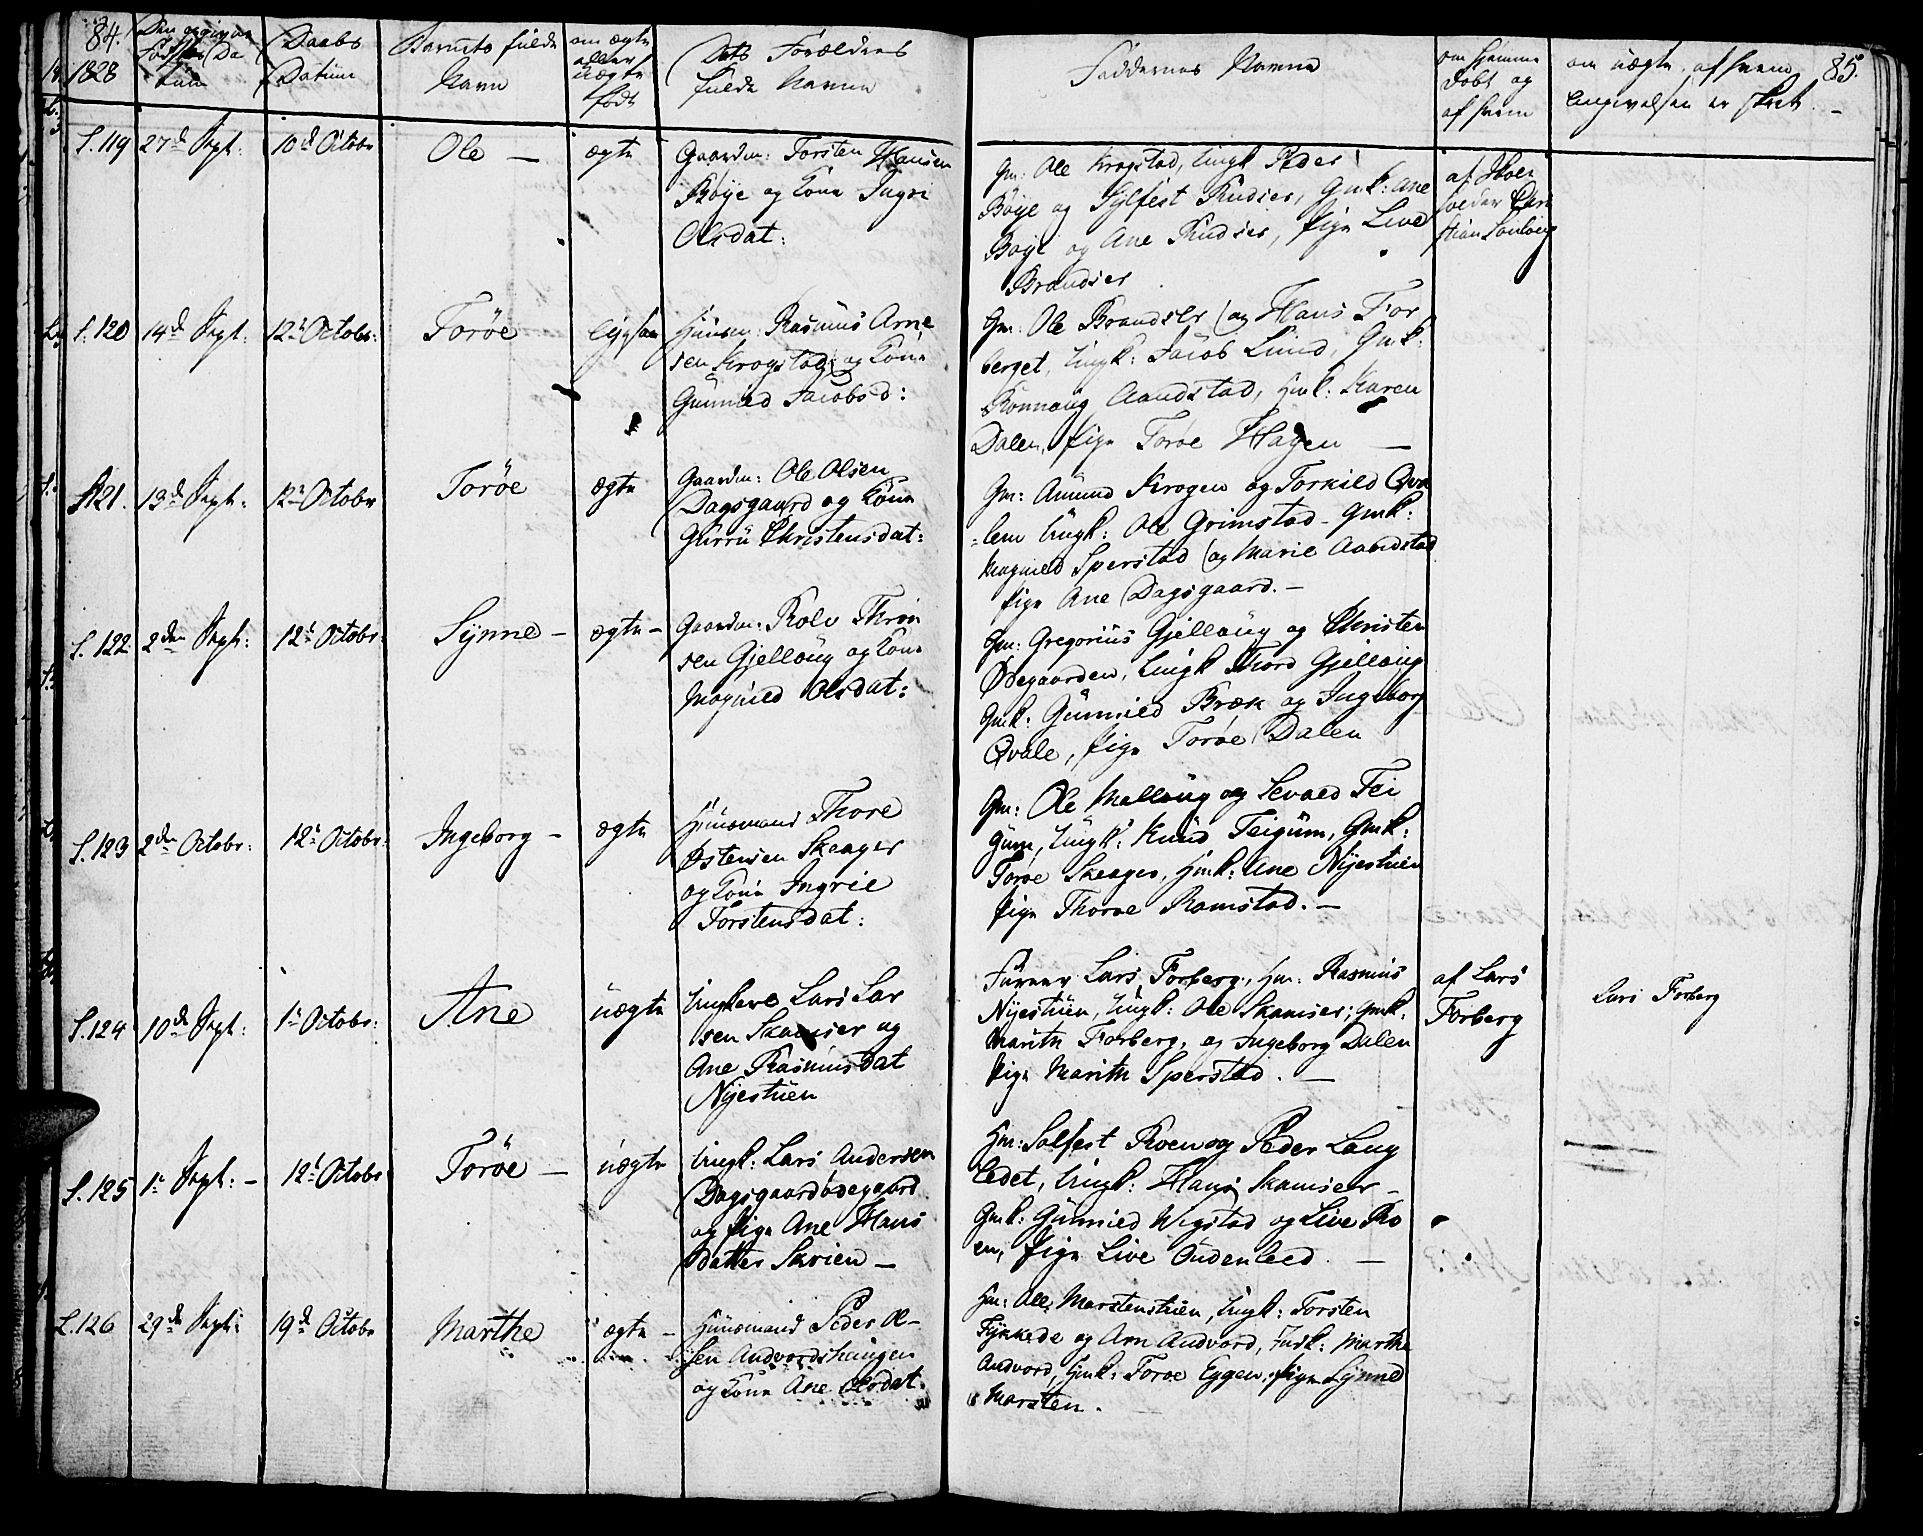 84.
1828
Den opgivne
Fødsels Da
tum
Daabs
Datum
Barnets fulde
Navn
om ægte
eller
uægte
født
Dets Forældres
fulde Navne
Faddernes Navne
om hjemme
døbt og
af hvem
om uægte, af hvem
Angivelsen er skeet.
85.
S. 119 27de Sept: 10de Octobr Ole — ægte
Gaardm: Torsten Hansen
Bøye og Kone Ingri
Olsdat:
Gm: Ole Krogstad, Ungk Peder
Bøye og Sylfest Rudier, Gmk: Ane
Bøye og Ane Rudier, Pige Live
Brandser
af
S. 120 14de Sept: 12te Octobr: Torøe
Huusm: Rasmus Arne
sen Krogstad og Kone
Gunnild Jacobsd:
Gm: Ole Brandser og Hans For
berget, Ungk: Jacob Lund, Gmk:
Rønnaug Aandstad, Hmk: Karen
Dalen, Pige Torøe Hagen —
S. 121. 13de Sept: 12te Octobr Torøe ægte
Gaardm: Ole Olsen
Dagsgaard og Kone
Gurru Christensdat:
Gm: Amund Krogen og Torkild Qva
lem Ungk: Ole Grimstad - Gmk:
Magnild Sperstad og Marie Aandstad
Pige Ane Dagsgaard. —
S. 122 2den Sept: 12te Octobr: Synne — ægte —
Gaardm: Rolv Thron
sen Gjelloug og Kone
Magnild Olsdat:
Gm: Gregorius Gjelloug og Christen
Ødegaarden, Ungk Thord Gjelloug
Gmk: Gunnild Bræk og Ingeborg
Qvale, Pige Torøe Dalen
S. 123 2den Octobr: 12te Octobr: Ingeborg — ægte
Huusmand Thore
Østensen Skaager
og Kone Ingrie
Torstensdat:
Gm: Ole Malloug og Sevald Tei
gum, Ungk: Knud Teigum, Gmk:
Torøe Skaager, Hmk: Ane Nyestuen
Pige Thoroe Ramstad. —
S. 124 10de Sept: 1te Octobr: Ane uægte
Ungkarl Lars Lar
sen Skamser og
Ane Rasmusdat
Nyestuen
Lars Forberg, Hm: Rasmus
Nyestuen, Ungk: Ole Skamser; Gmk:
Marith Forberg, og Ingeborg Dalen
Pige Marith Sperstad. —
af Lars
Forberg
Lars Forberg
S. 125 1te Sept: — 12te Octobr Torøe — uægte
Ungk: Lars Andersen
Dagsgaardødegaard
og Pige Ane Hans
datter Skrien —
Hm: Solfest Roen og Peder Laug
ledet, Ungk: Hans Skamser —
Gmk: Gunnild Wigstad og Live Ro
en, Pige Live Oudenleed. —
S. 126 29de Sept: 19de Octobr Marthe ægte —
Huusmand Peder Ol-
sen Andvordshaugen
og Kone Ane Olsdat:
Hm: Ole Marstenstuen, Ungk: Torsten
Fykkede og Arn Andvord, Marthe
Andvord, Gmk: Toroe Eggen, Pige Synne
Marsten.